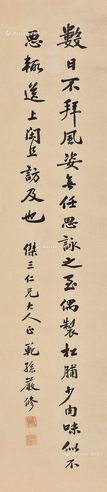 數日不拜風姿無任思詠之至偶製杜脯少肉味似不
惡輒送上閑且訪及也
傑三仁兄大人正 範孫嚴修